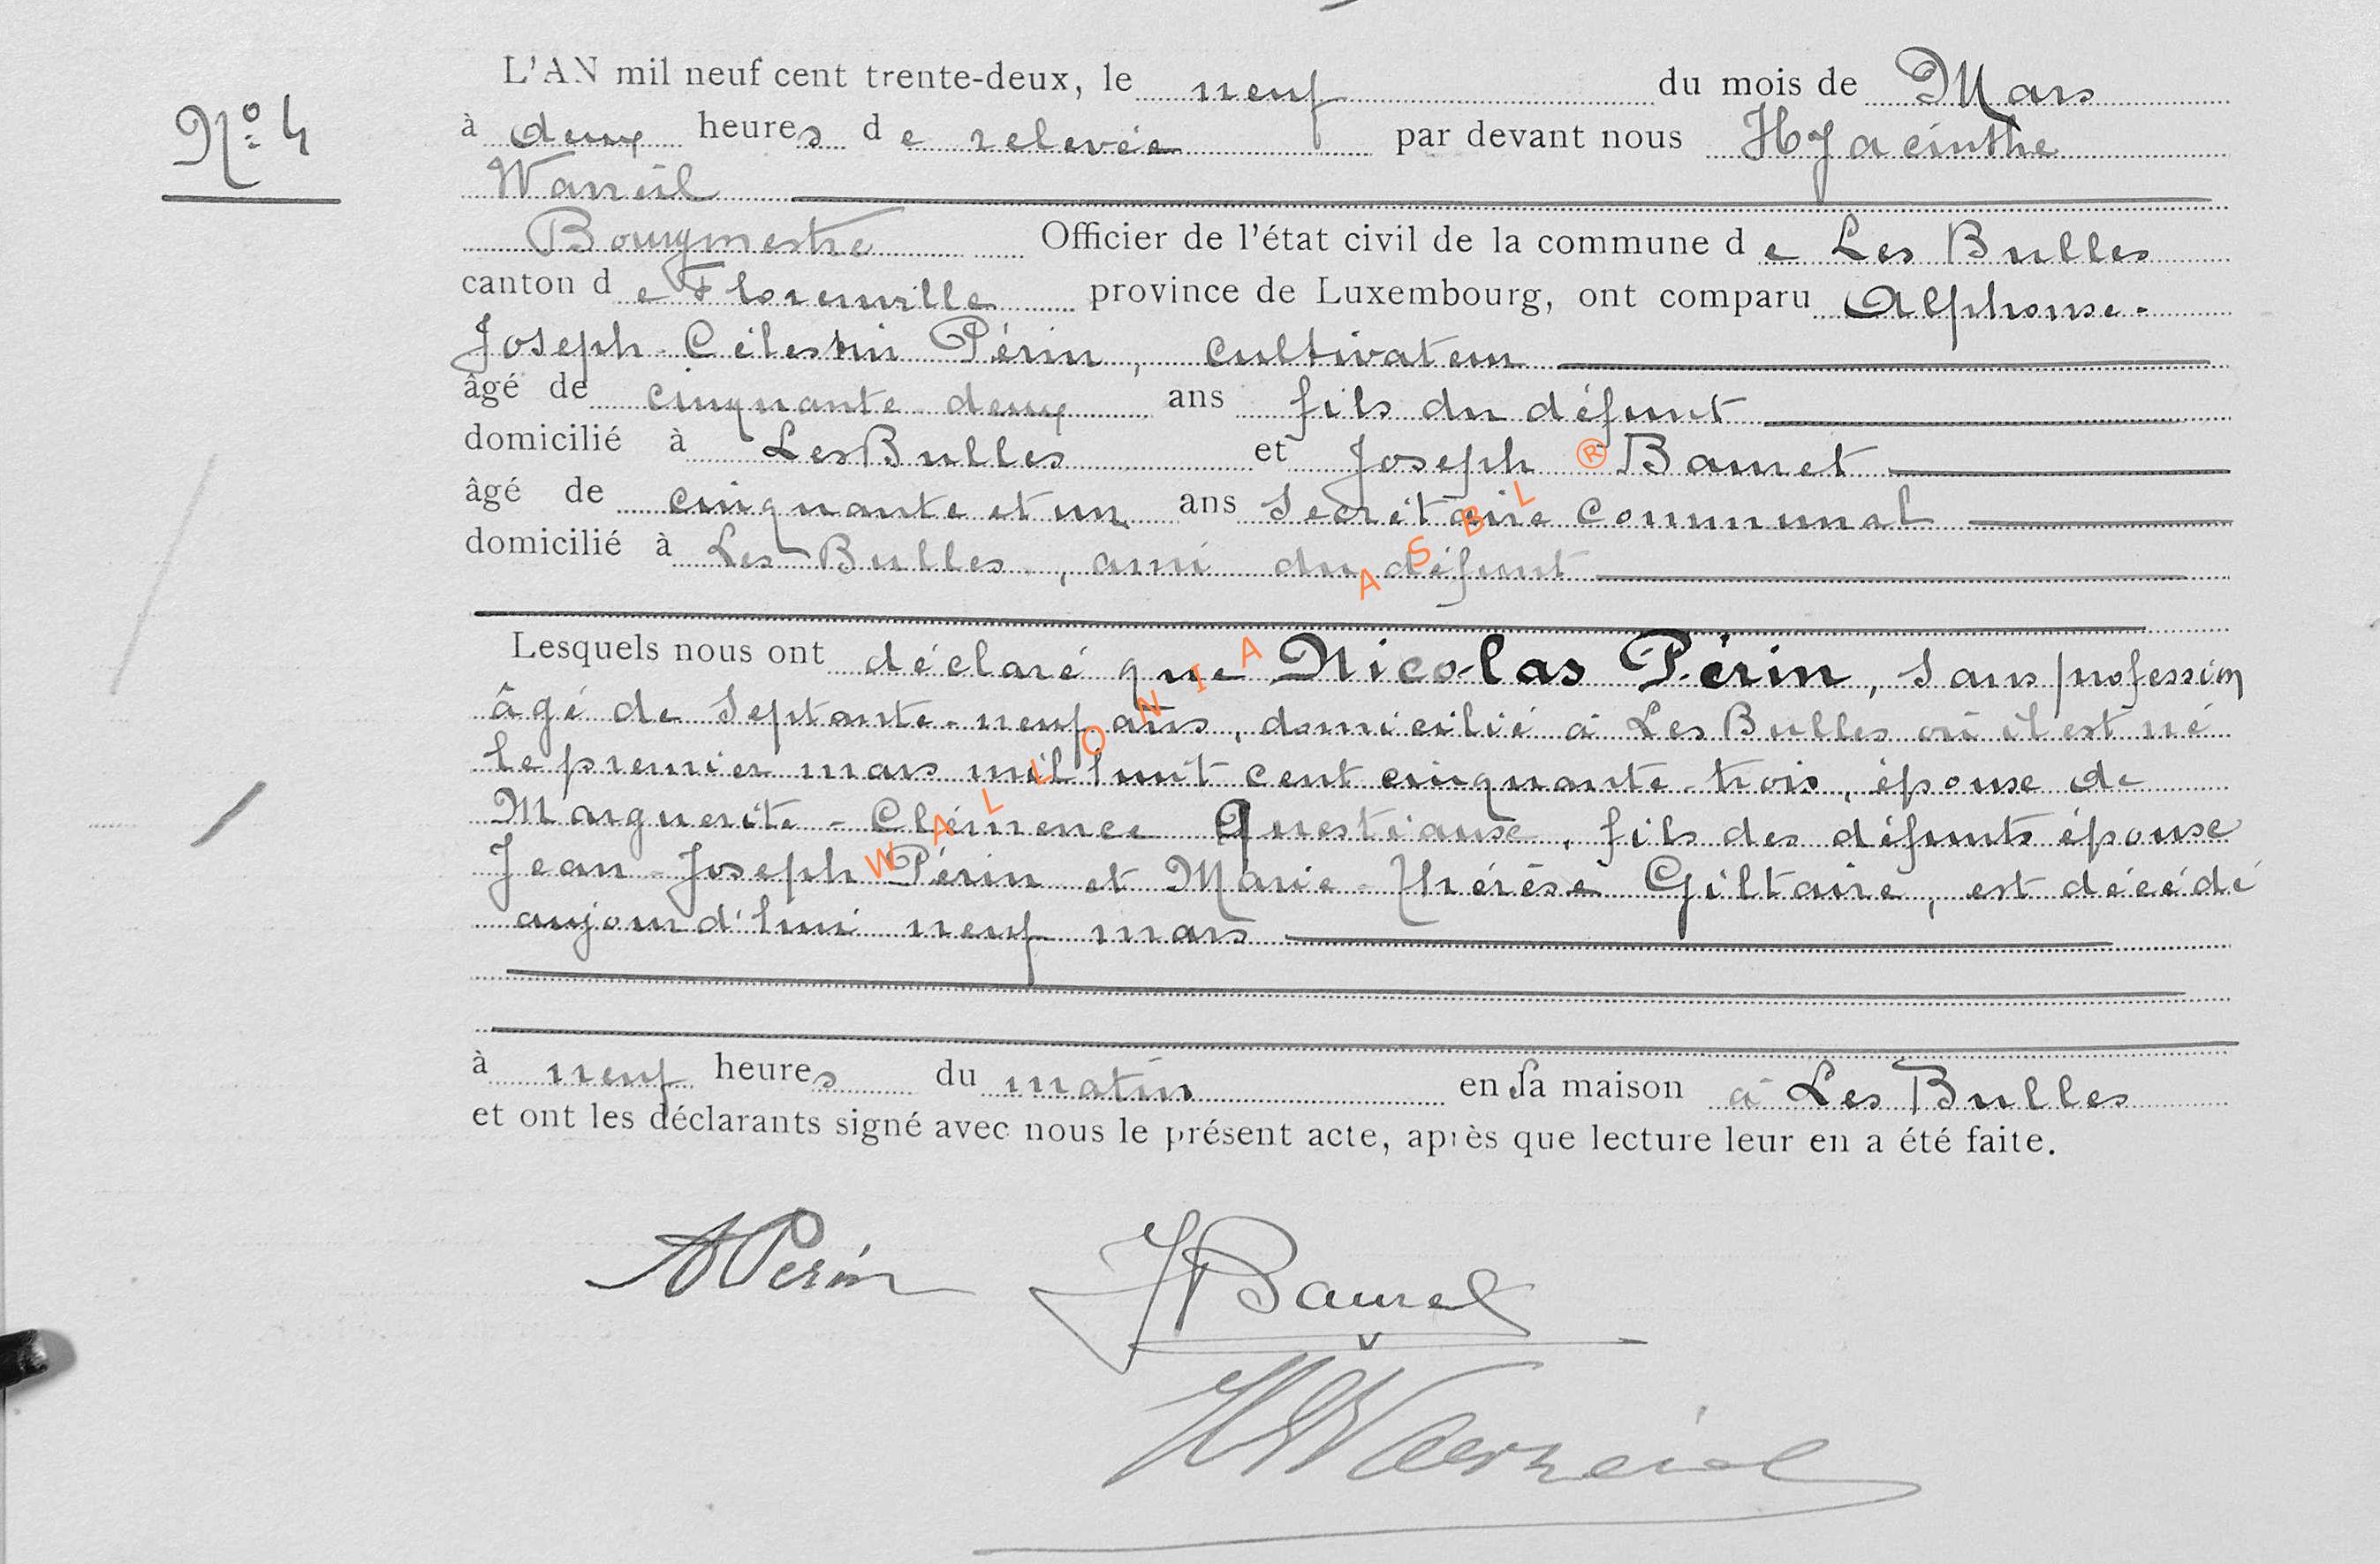 L'AN mil neuf cent trente-deux, le neuf du mois de Mars
Nº 4
à deux heures de relevée par devant nous Hyacinthe
Bourgmestre Officier de l'état civil de la commune de Les Bulles
canton de Florenville province de Luxembourg, ont comparu Alphonse-
Joseph-Célestin Périn, cultivateur
âgé de cinquante-deux ans fils du défunt
domicilié à Les Bulles et Joseph
âgé de cinquante et un ans Secrétaire Communal
domicilié à Les Bulles, ami du défunt
Lesquels nous ont déclaré que Nicolas Périn, sans profession
âgé de septante-neuf ans, domicilié à Les Bulles où il est né
le premier mars mil huit cent cinquante-trois, épouse de
Marguerite-Clémence, fils des défunts épouse
Jean-Joseph Périn et Marie-Thérèse Giltaire, est décédé
aujourd'hui neuf mars
à neuf heures du matin en sa maison à Les Bulles
et ont les déclarants signé avec nous le présent acte, après que lecture leur en a été faite.
A Perin
WALLONIA ASBL ®